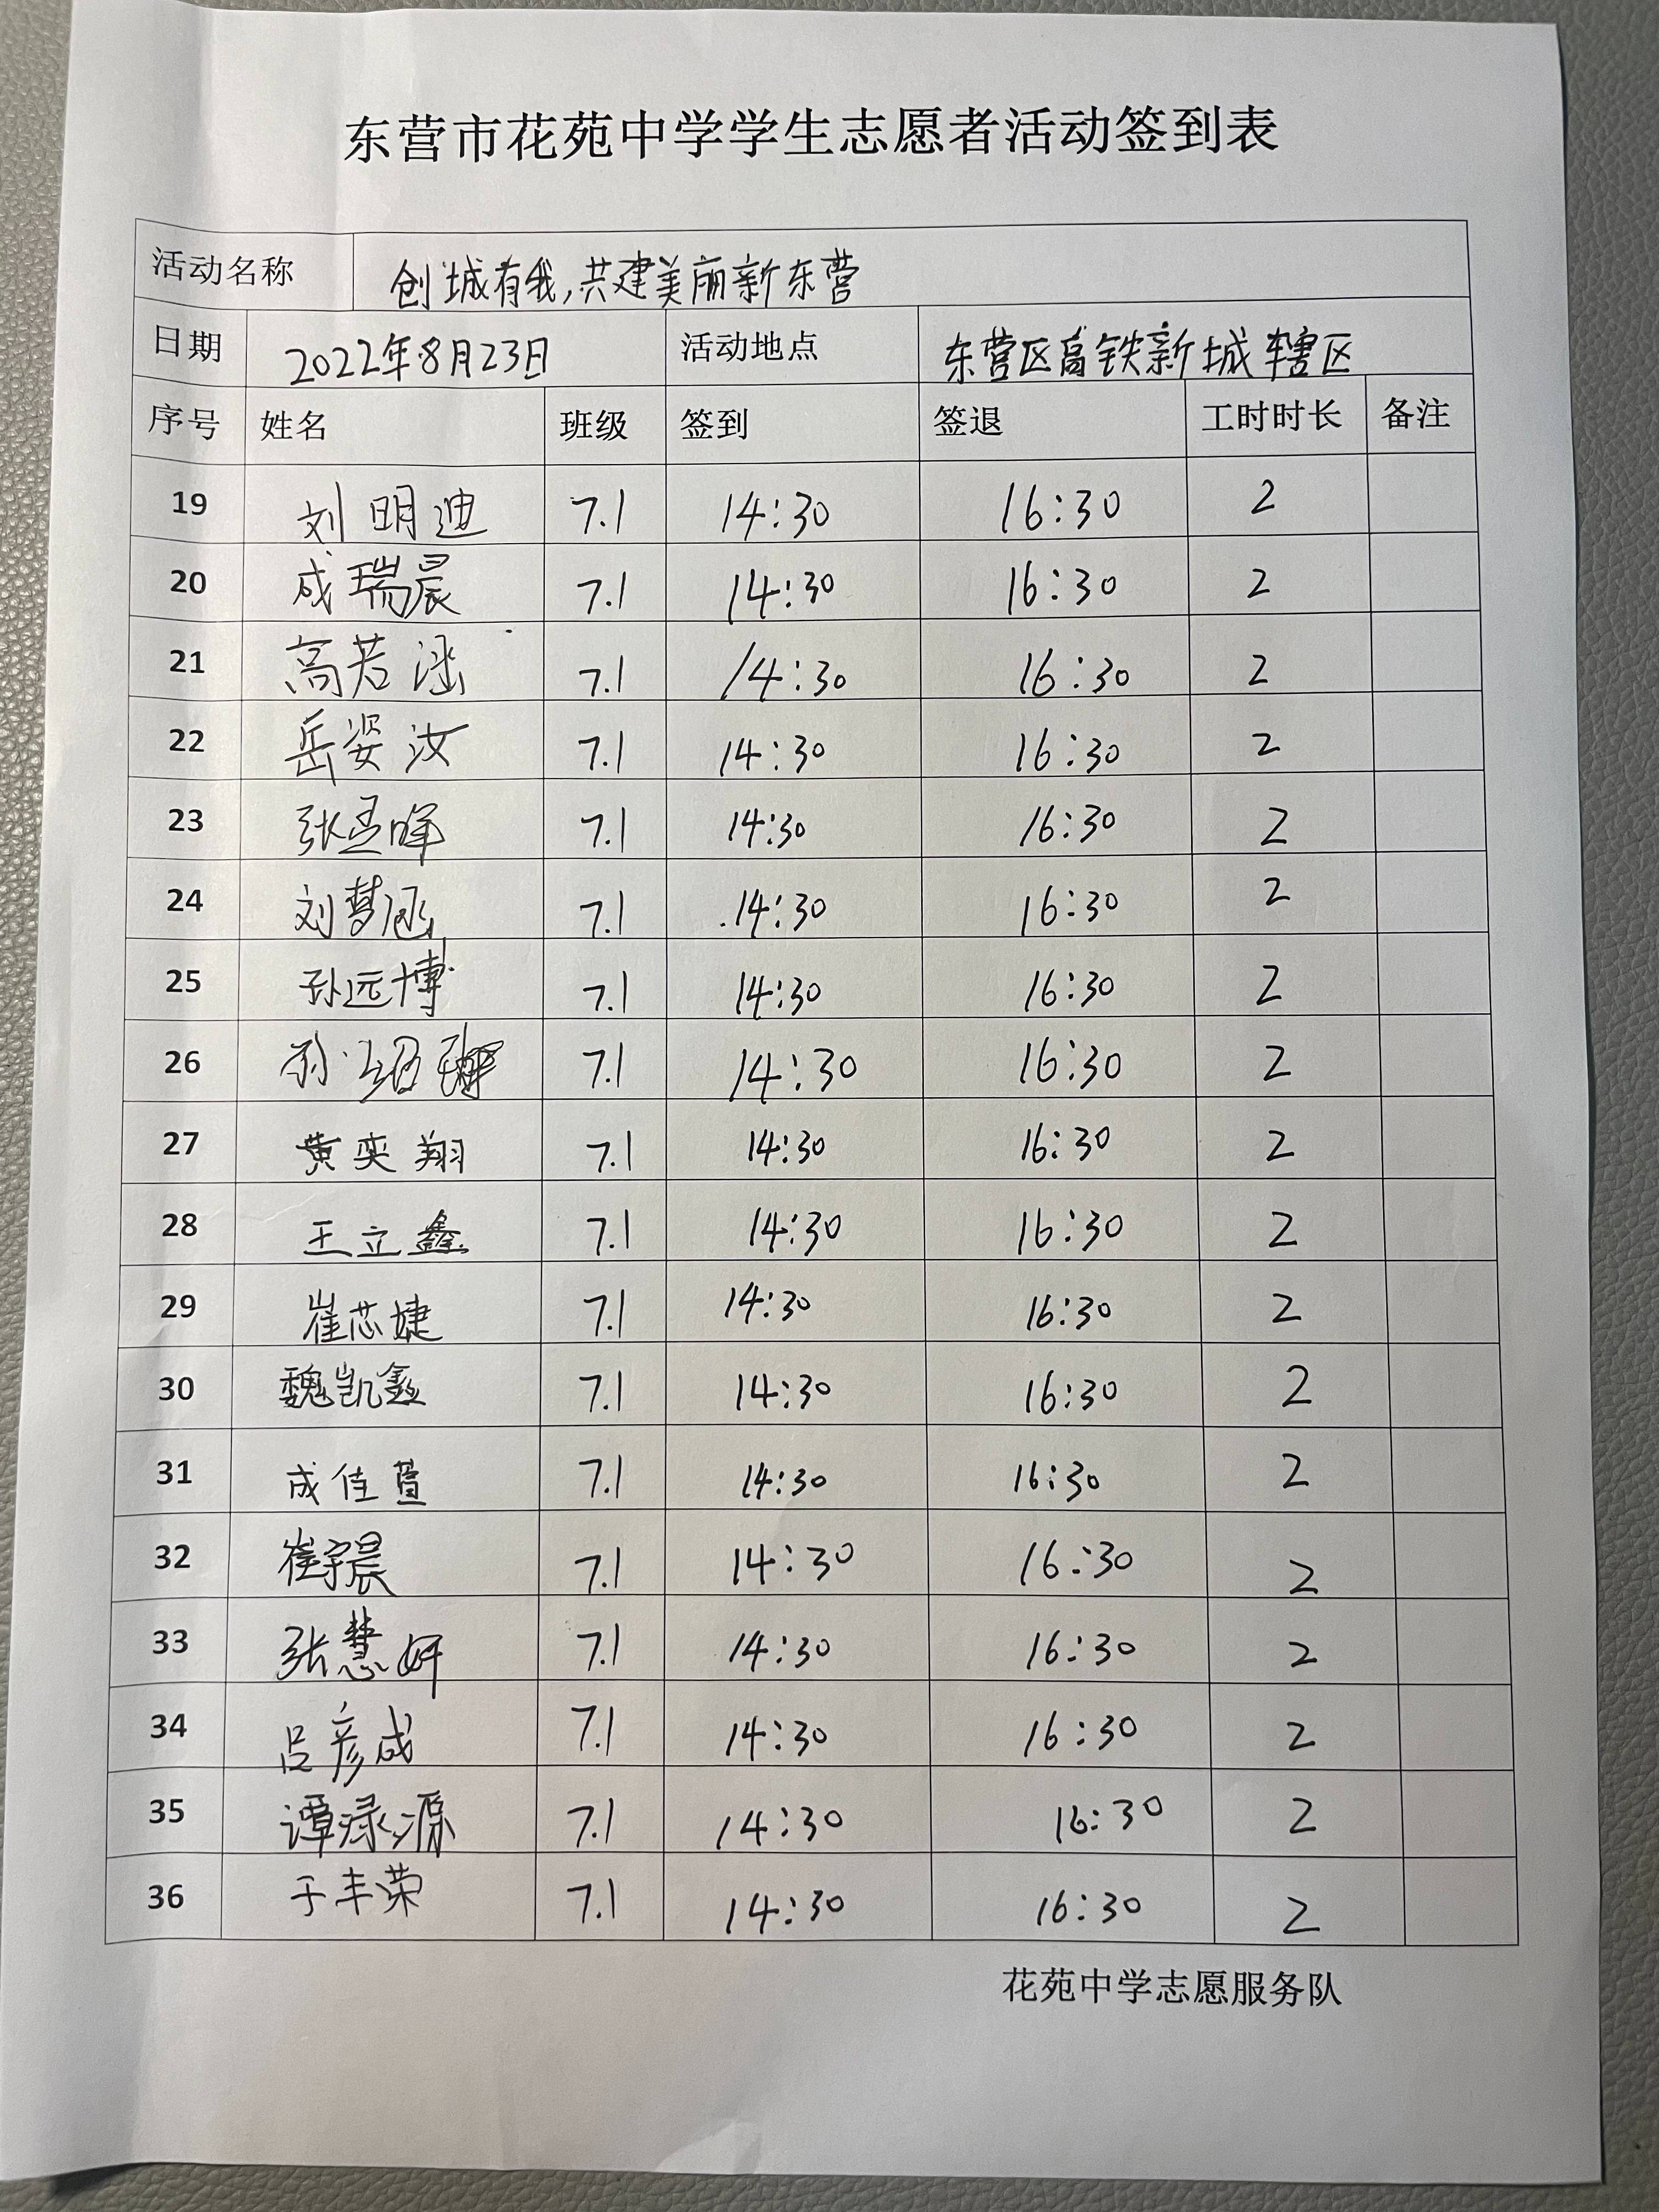 东营市花苑中学学生志愿者活动签到表
活动名称 创城有我,共建美丽新东营
日期 2022年8月23日 活动地点 东营区高铁新城辖区
序号 姓名 班级 签到 签退 工时时长 备注
19 刘明迪 7.1 14:30 16:30 2
20 成瑞晨 7.1 14:30 16:30 2
21 高若涵 7.1 14:30 16:30 2
22 岳姿汝 7.1 14:30 16:30 2
23 张孟晖 7.1 14:30 16:30 2
24 刘梦涵 7.1 14:30 16:30 2
25 孙远博 7.1 14:30 16:30 2
26 孙绍 7.1 14:30 16:30 2
27 黄奕翔 7.1 14:30 16:30 2
28 王立鑫 7.1 14:30 16:30 2
29 崔芯婕 7.1 14:30 16:30 2
30 魏凯鑫 7.1 14:30 16:30 2
31 成佳萱 7.1 14:30 16:30 2
32 崔宇晨 7.1 14:30 16:30 2
33 张慧妍 7.1 14:30 16:30 2
34 吕彦成 7.1 14:30 16:30 2
35 谭渌源 7.1 14:30 16:30 2
36 于丰荣 7.1 14:30 16:30 2
花苑中学志愿服务队